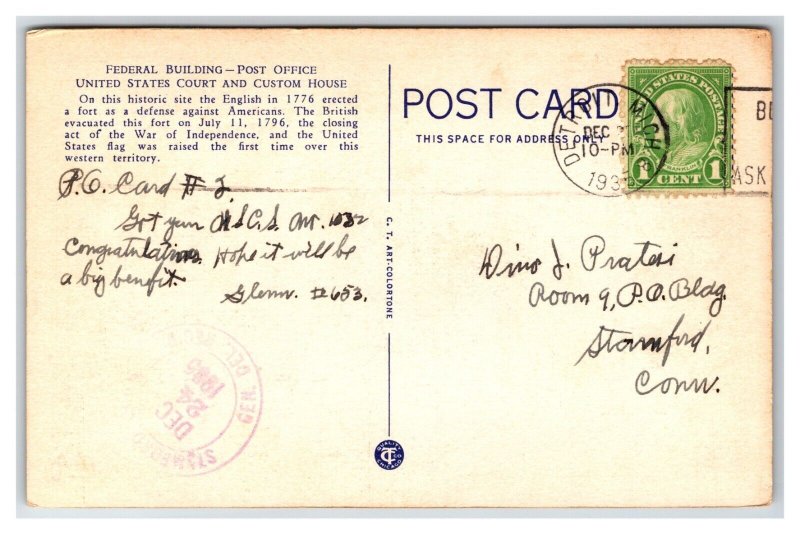 FEDERAL BUILDING—POST OFFICE
UNITED STATES COURT AND CUSTOM HOUSE
On this historic site the English in 1776 erected
a fort as a defense against Americans. The British
evacuated this fort on July 11, 1796, the closing
act of the War of Independence, and the United
States flag was raised the first time over this
western territory.
P.O. Card # 2.
Got your 1032
Congratulations. Hope it will be
a big benefit.
Glenn. #653.
STAMFORD
DEC
24
1935
GEN. DEL.
C. T. ART-COLORTONE
QUALITY
CT CO
CHICAGO
POST CARD
THIS SPACE FOR ADDRESS ONLY
DETROIT, MICH.
DEC
10-PM
193
UNITED STATES POSTAGE
FRANKLIN
1 CENT 1
BE
ASK
Dino J. Pratesi
Room 9, P.O. Bldg.
Stamford,
Conn.